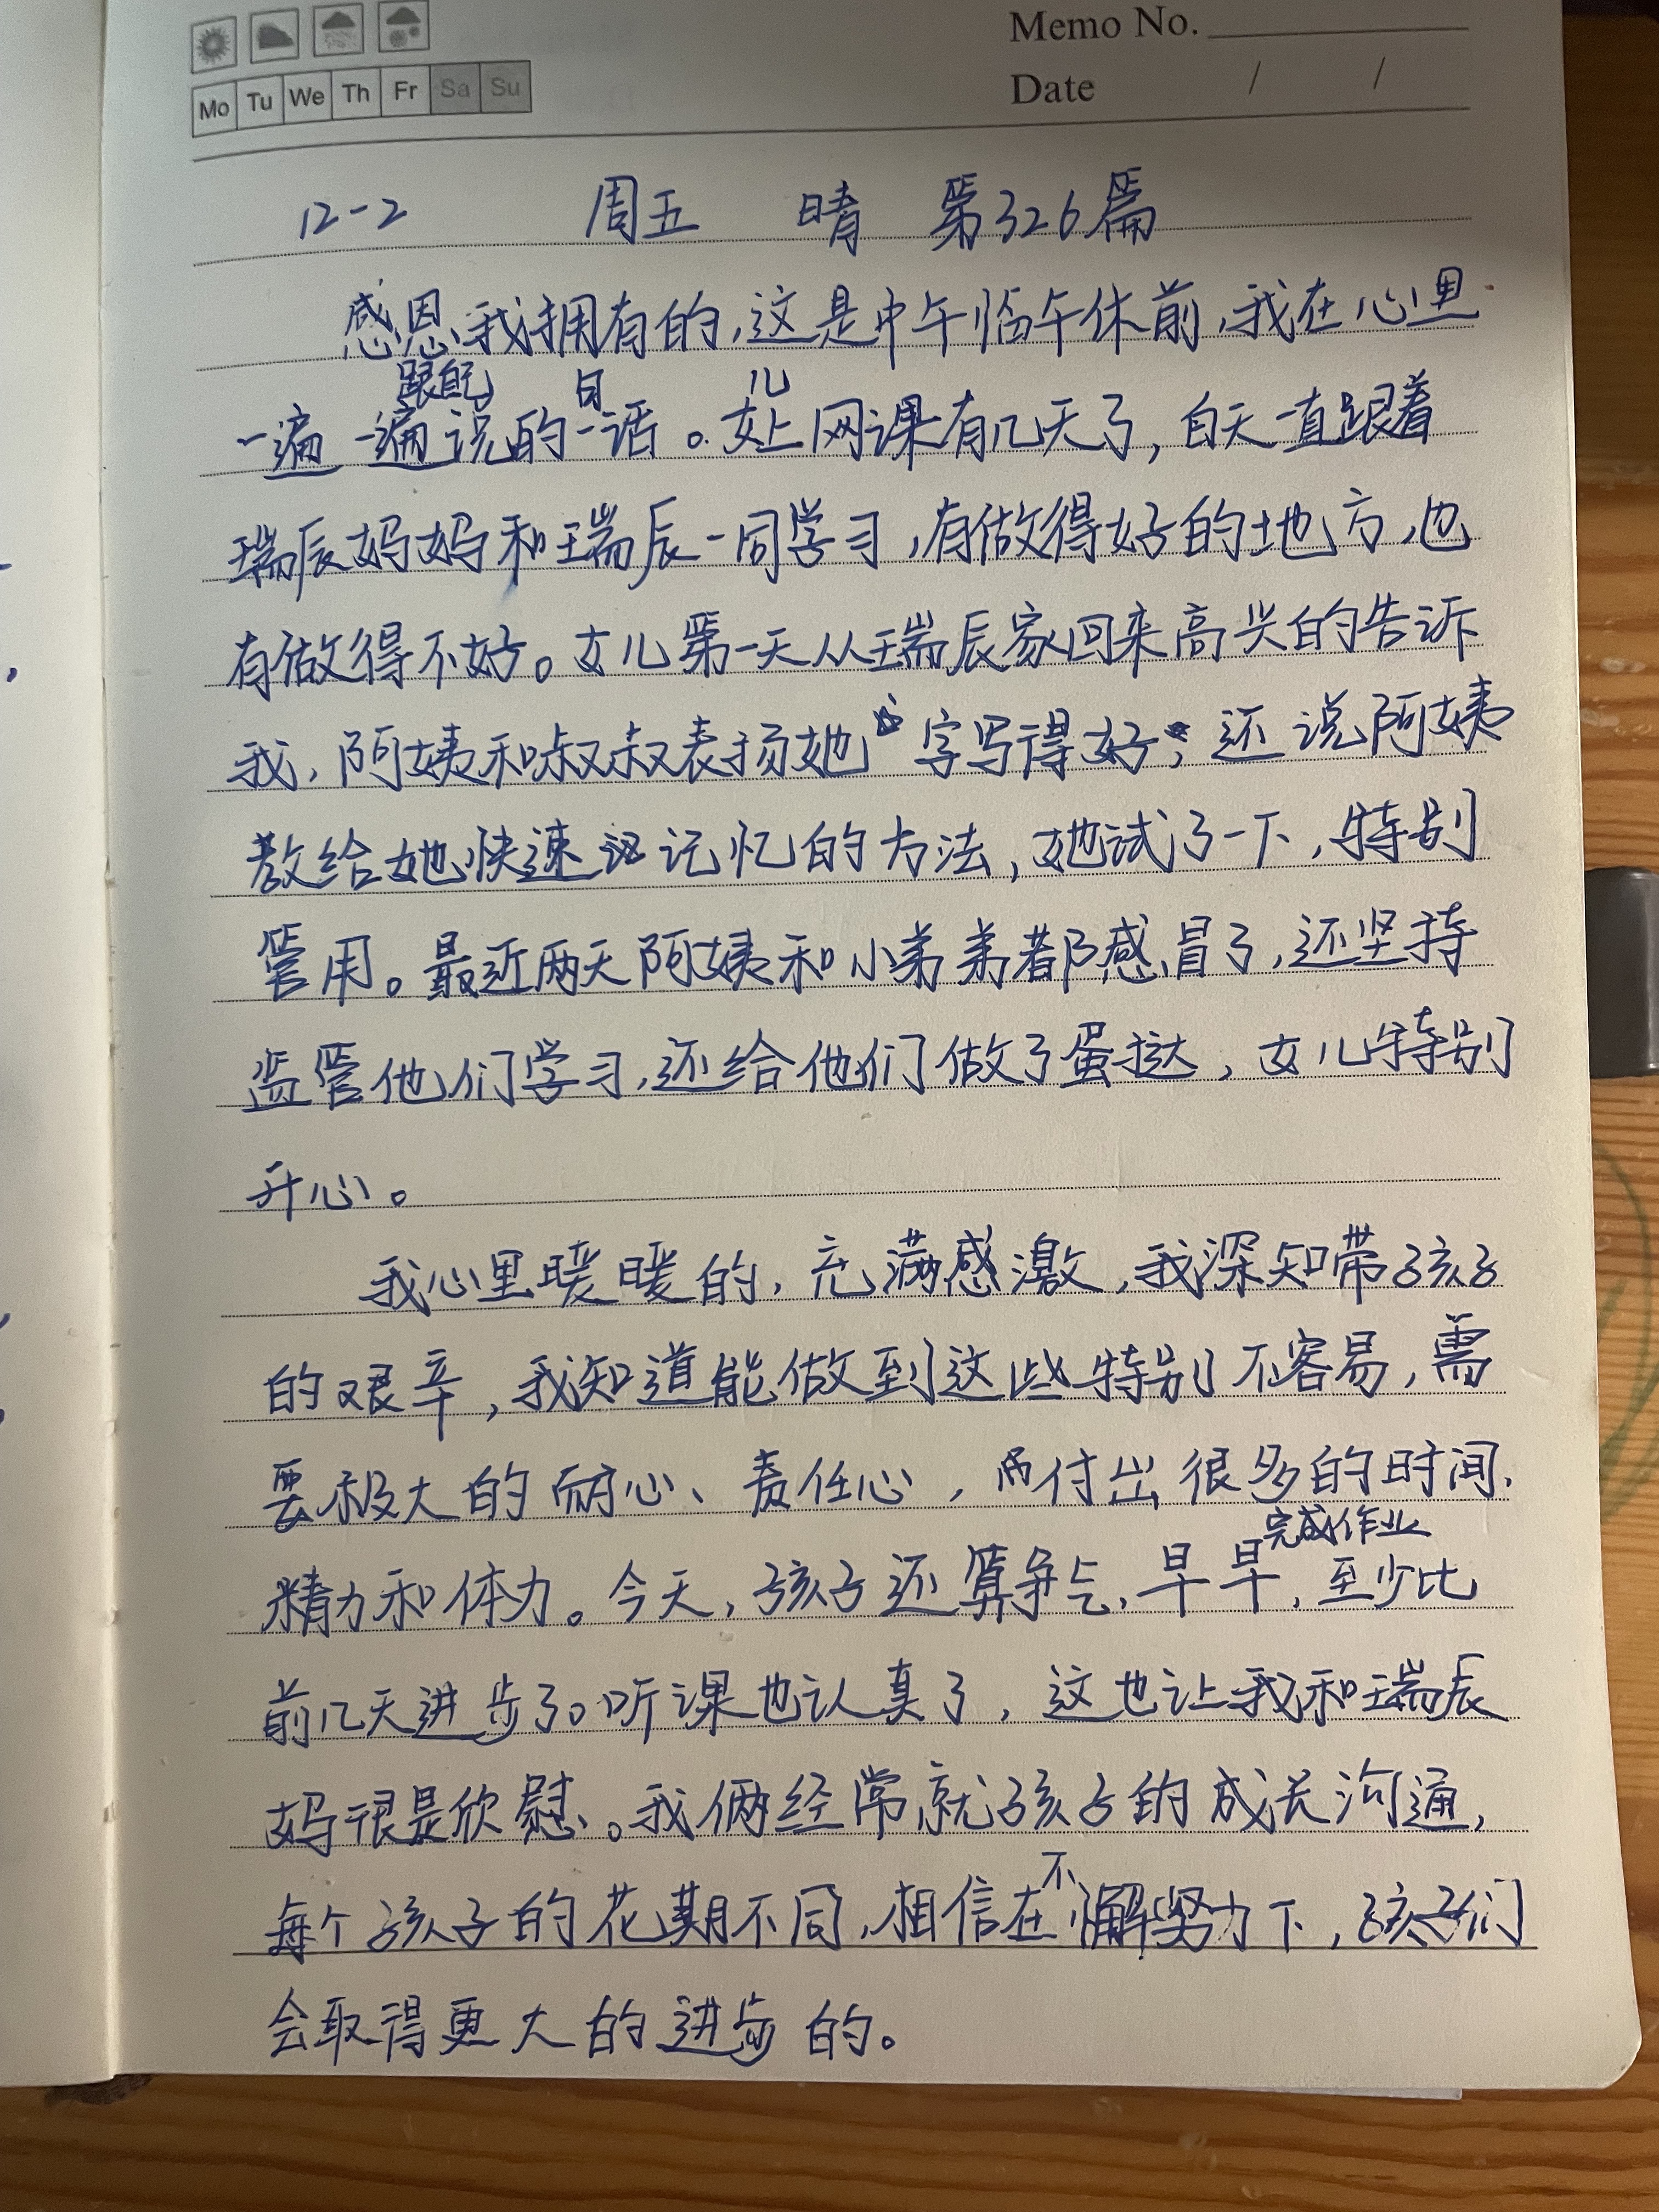 Memo No.
Mo Tu We Th Fr Sa Su
Date / /
12-2 周五 晴 第326篇
感恩我拥有的,这是中午临午休前,我在心里
一遍一遍跟自己说的一句话。女儿上网课有几天了,白天一直跟着
瑞辰妈妈和瑞辰一同学习,有做得好的地方,也
有做得不好。女儿第一天从瑞辰家回来高兴的告诉
我,阿姨和叔叔表扬她字写得好;还说阿姨
教给她快速记忆的方法,她试了一下,特别
管用。最近两天阿姨和小弟弟都感冒了,还坚持
监管他们学习,还给他们做了蛋挞,女儿特别
开心。
我心里暖暖的,充满感激,我深知带孩子
的艰辛,我知道能做到这些特别不容易,需
要极大的耐心、责任心,而付出很多的时间.
精力和体力。今天,孩子还算争气,早早完成作业,至少比
前几天进步了。听课也认真了,这也让我和瑞辰
妈很是欣慰。我俩经常就孩子的成长沟通,
每个孩子的花期不同,相信在不懈努力下,孩子们
会取得更大的进步的。